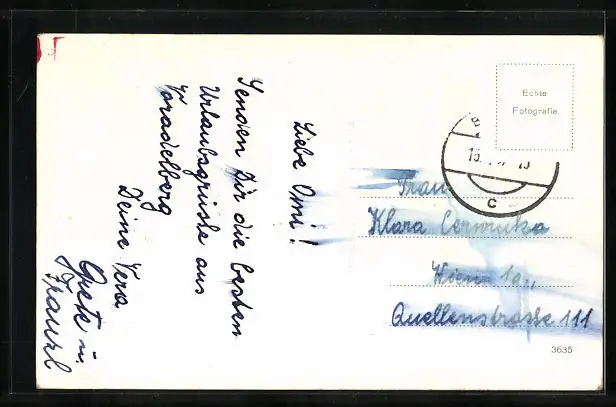 Liebe Omi!
Senden Dir die besten
Urlaubsgrüße aus
Voradelberg
Deine Vera
Grete u.
Franzl
Echte
Fotografie
Frau
Klara
Wien
Quellenstrasse 111
3635
C